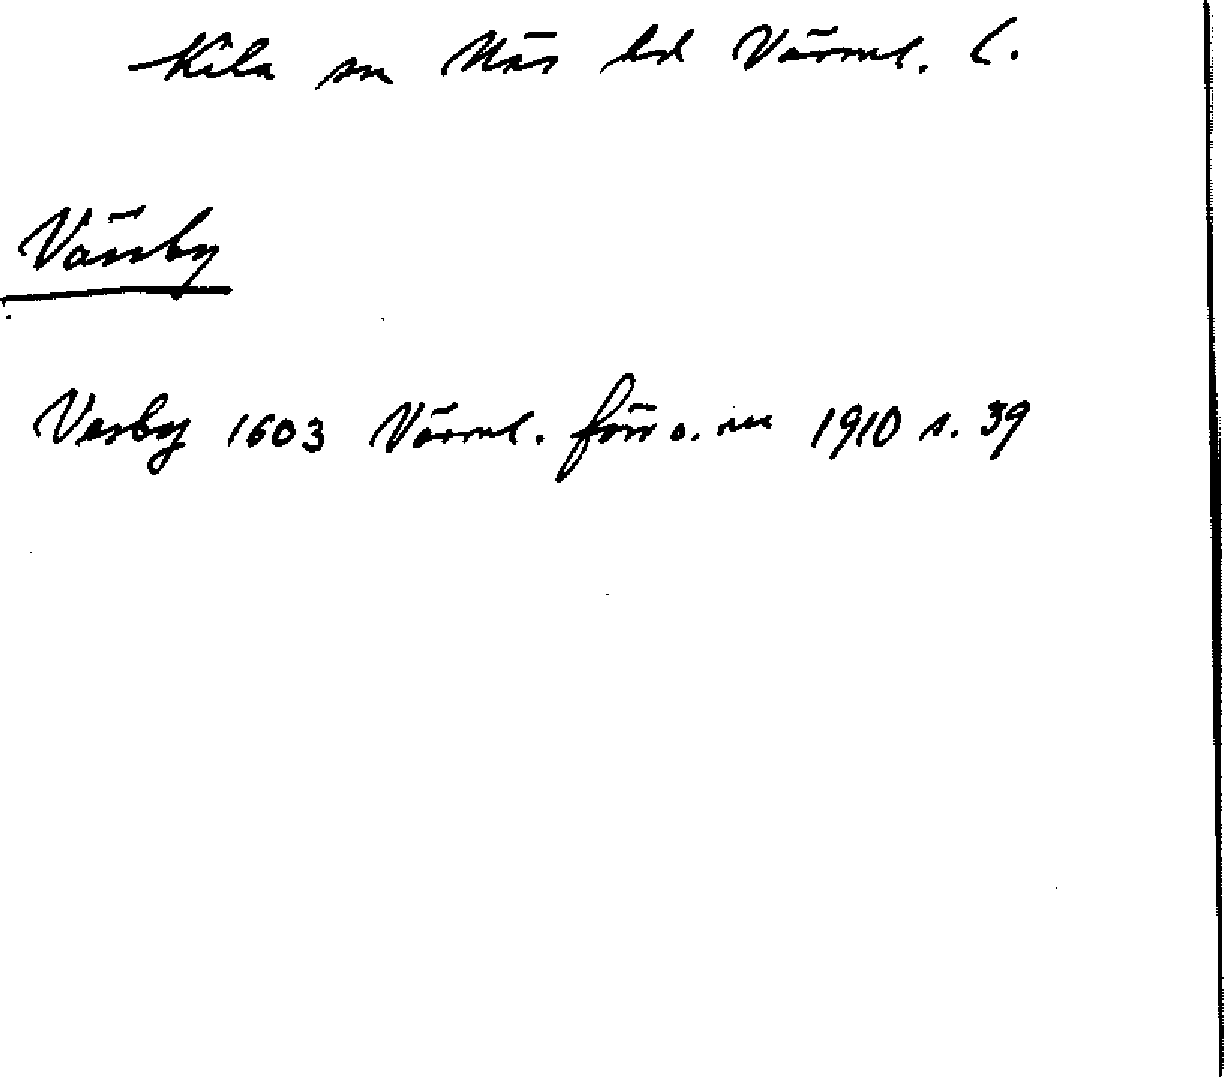 Kila sn Näs hd Värml. l.
Värsby
Vesby 1603 Värml. förr o. nu 1910 s. 39